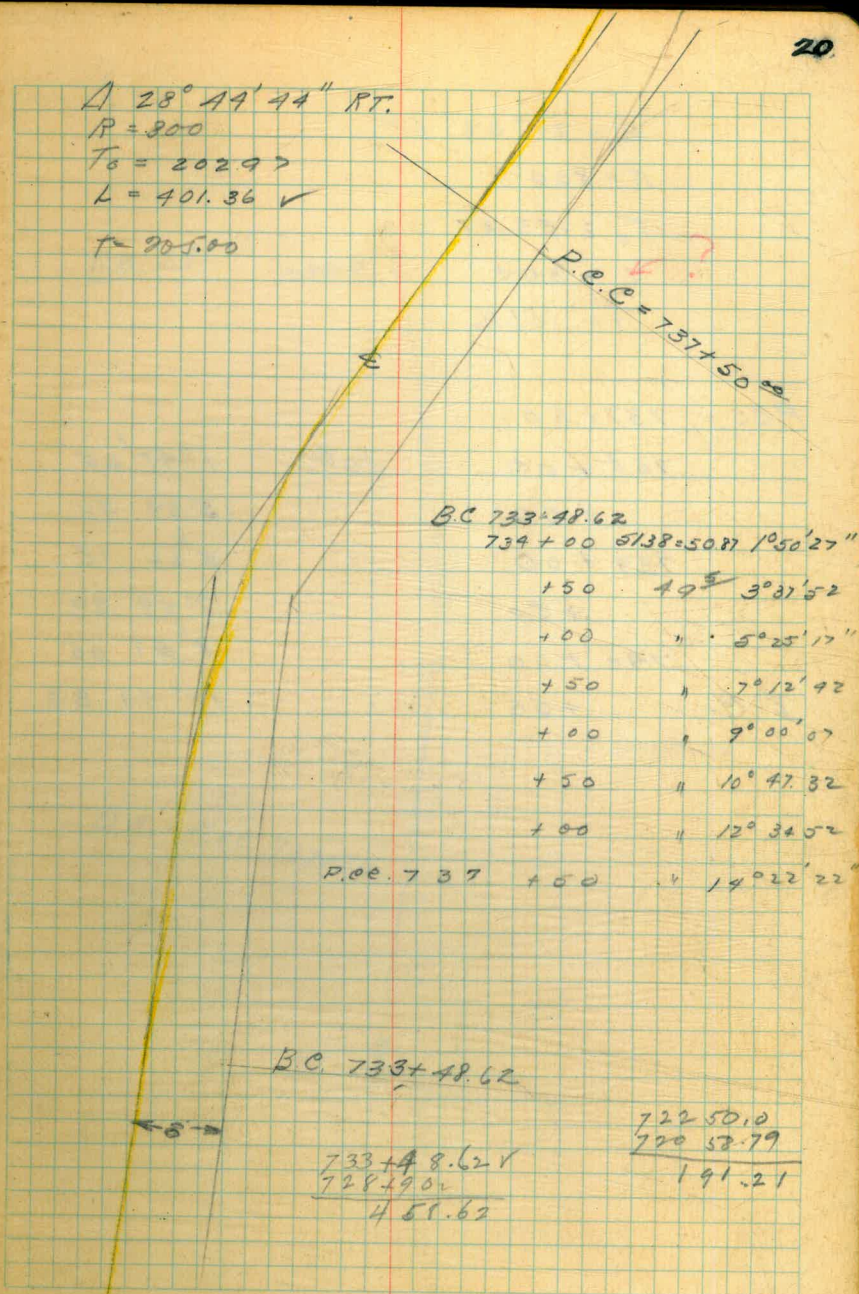 20
Δ 28° 44' 44" RT.
R = 800
To = 202.97
L = 401.36 ✓
T = 205.00
?
P.C.C = 737+50.00
B.C 733+48.62
734 + 00 51.38=50.87 1°50'27"
+50 49.5 3°37'52
+00 " 5°25'17"
+50 " 7°12'42
+00 " 9°00'07
+50 " 10°47.32
+00 " 12°34 52
P.CC. 737 +50 " 14°22'22"
B.C. 733+48.62
6
733+48.62 ✓
728+90
458.62
722 50.0
720 58.79
191.21